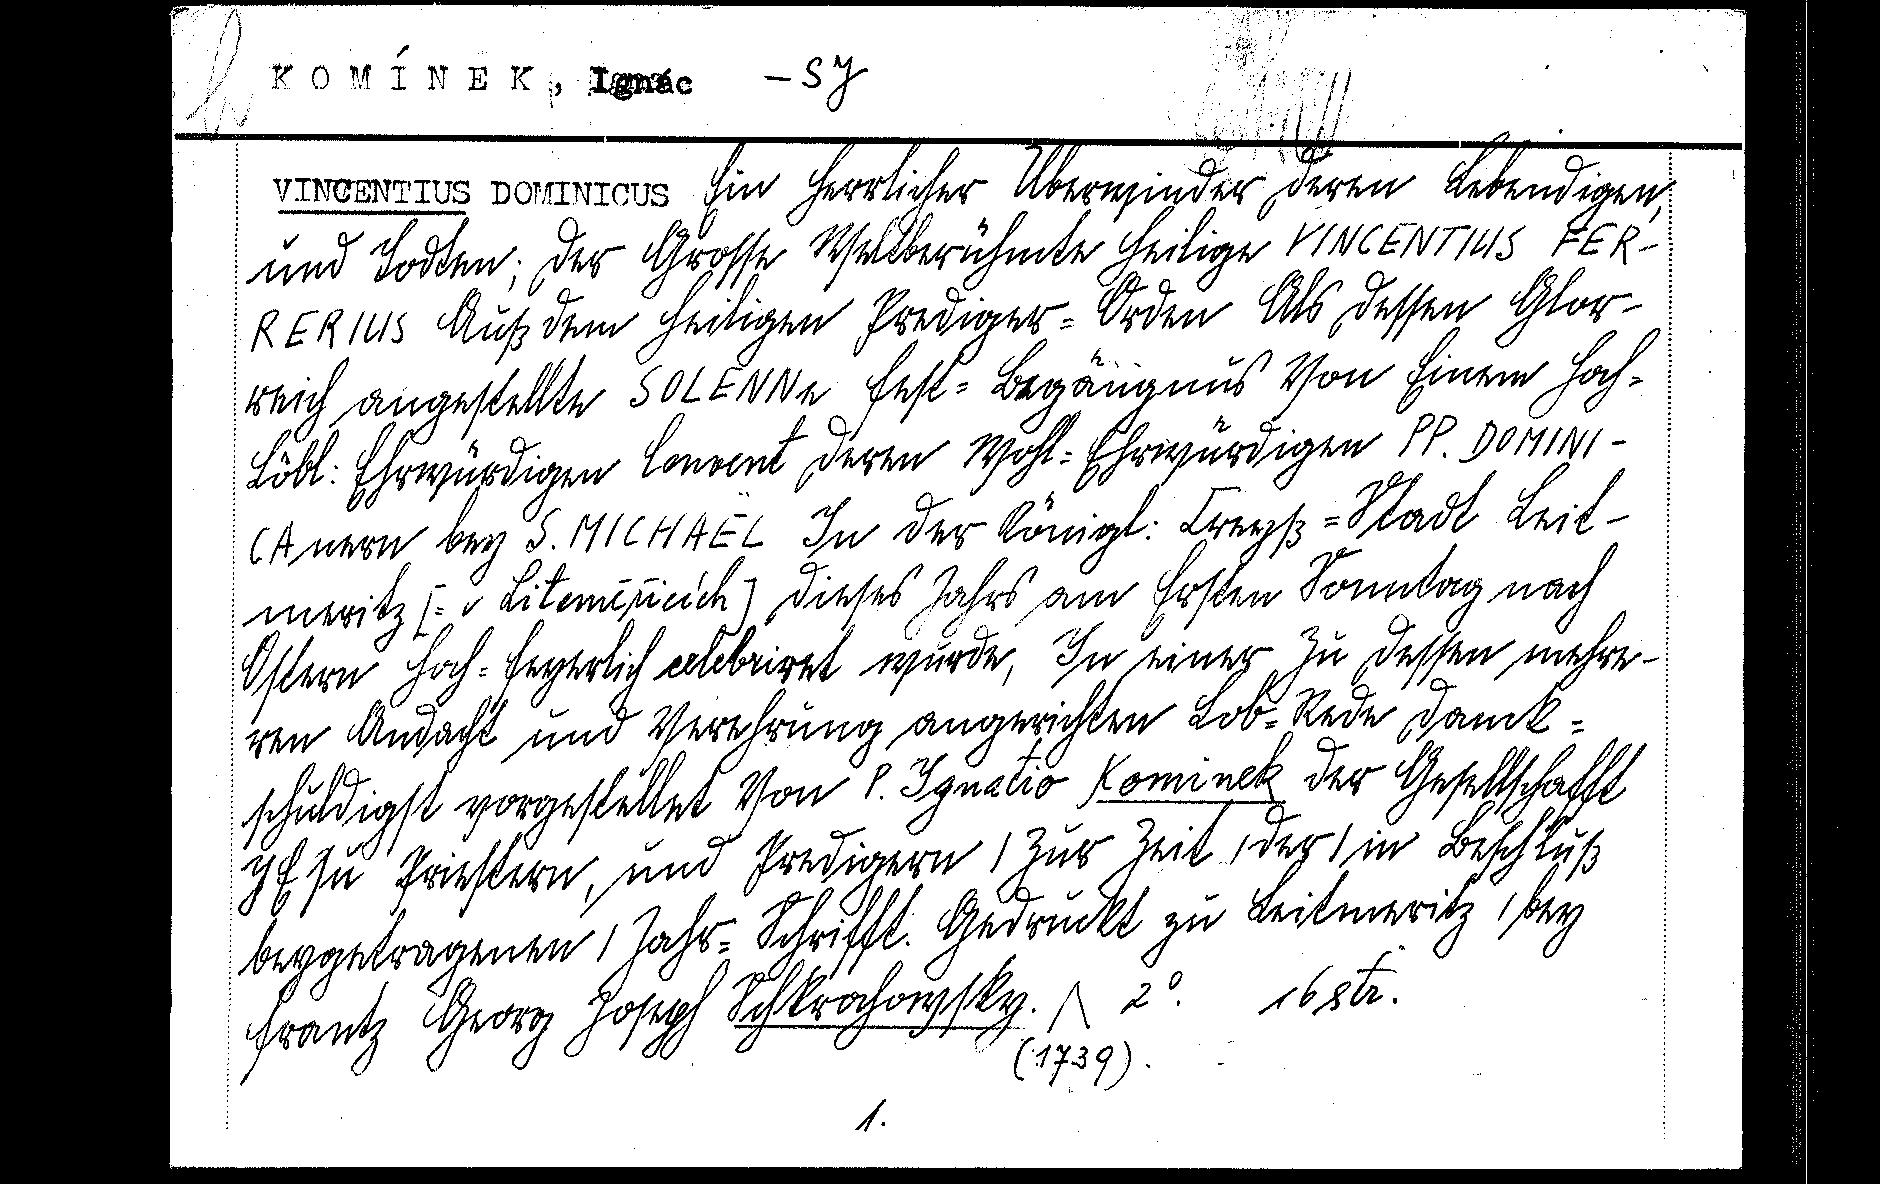 KOMÍNEK, Ignác - SJ
VINCENTIUS DOMINICUS Ein Herrlicher Uberwinder deren Lebendigen,
und Todten; der Grosse Weltberühmte Heilige VINCENTIUS FER-
RERIUS Auß dem Heiligen Prediger= Orden Als dessen Glor-
reich angestellte SOLENNe Fest= Begängnus Von Einem Hoch=
Löbl: Ehrwürdigen Convent deren Wohl= Ehrwürdigen PP. DOMINI-
CAnern bey S. MICHAËL In der Königl: Creyß=Stadt Leit-
meritz [= v Litoměřicích] dieses Jahrs am Ersten Sonntag nach
Ostern Hoch= feyerlich celebriret wurde, In einer Zu dessen mehre-
ren Andacht und Verehrung angerichten Lob= Rede danck=
schuldigst vorgestellet Von P. Ignatio Kominek der Gesellschafft
JEsu Priestern, und Predigern / Zur Zeit / der / in Beschluß
beygetragenen / Jahr= Schrifft. Gedruckt zu Leitmeritz / bey
Frantz Georg Joseph Schkrochowsky. 2°. 16 str.
(1739).
1.